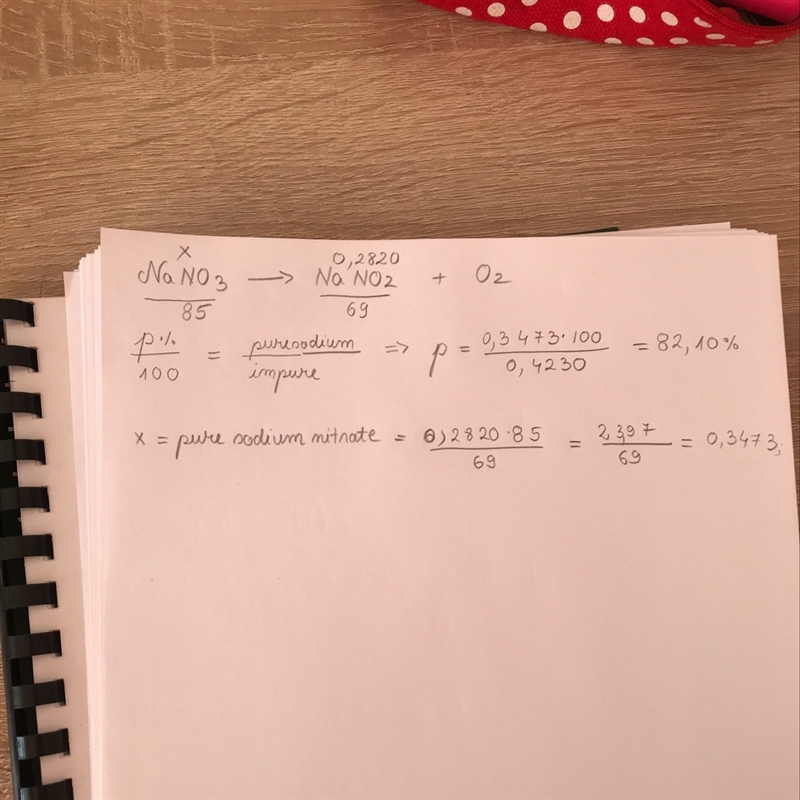 x 0,2820
NaNO3 → NaNO2 + O2
85 69
p% / 100 = pure sodium / impure => p = 0,3473·100 / 0,4230 = 82,10%
x = pure sodium nitrate = 0,2820·85 / 69 = 2,397 / 69 = 0,3473;